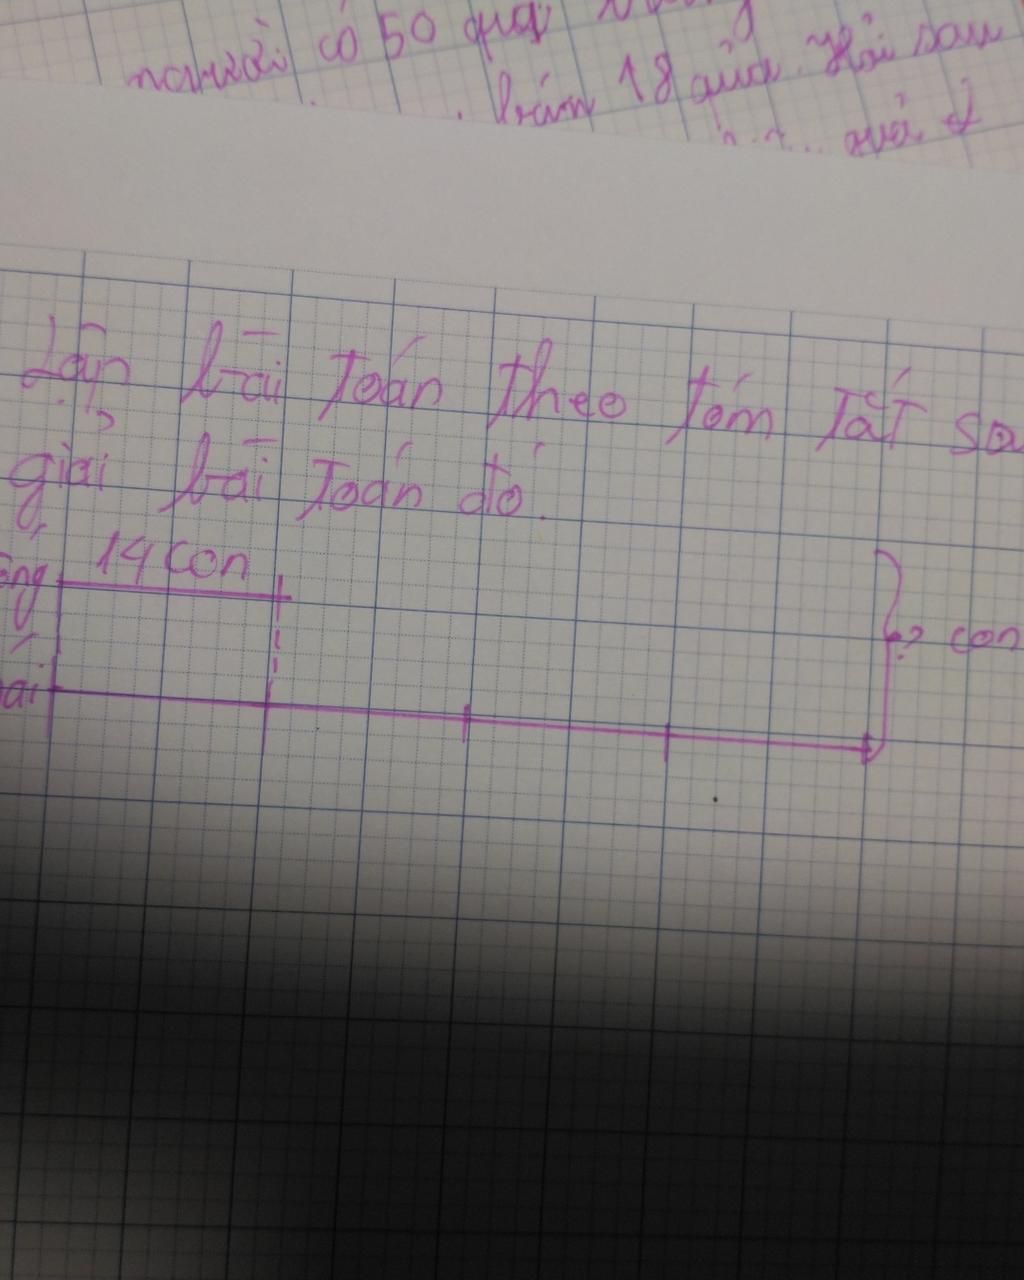 có 50 quả
bán 18 quả. Hỏi sau
quả
Lập bài toán theo tóm tắt
giải bài toán đó.
14 con
? con